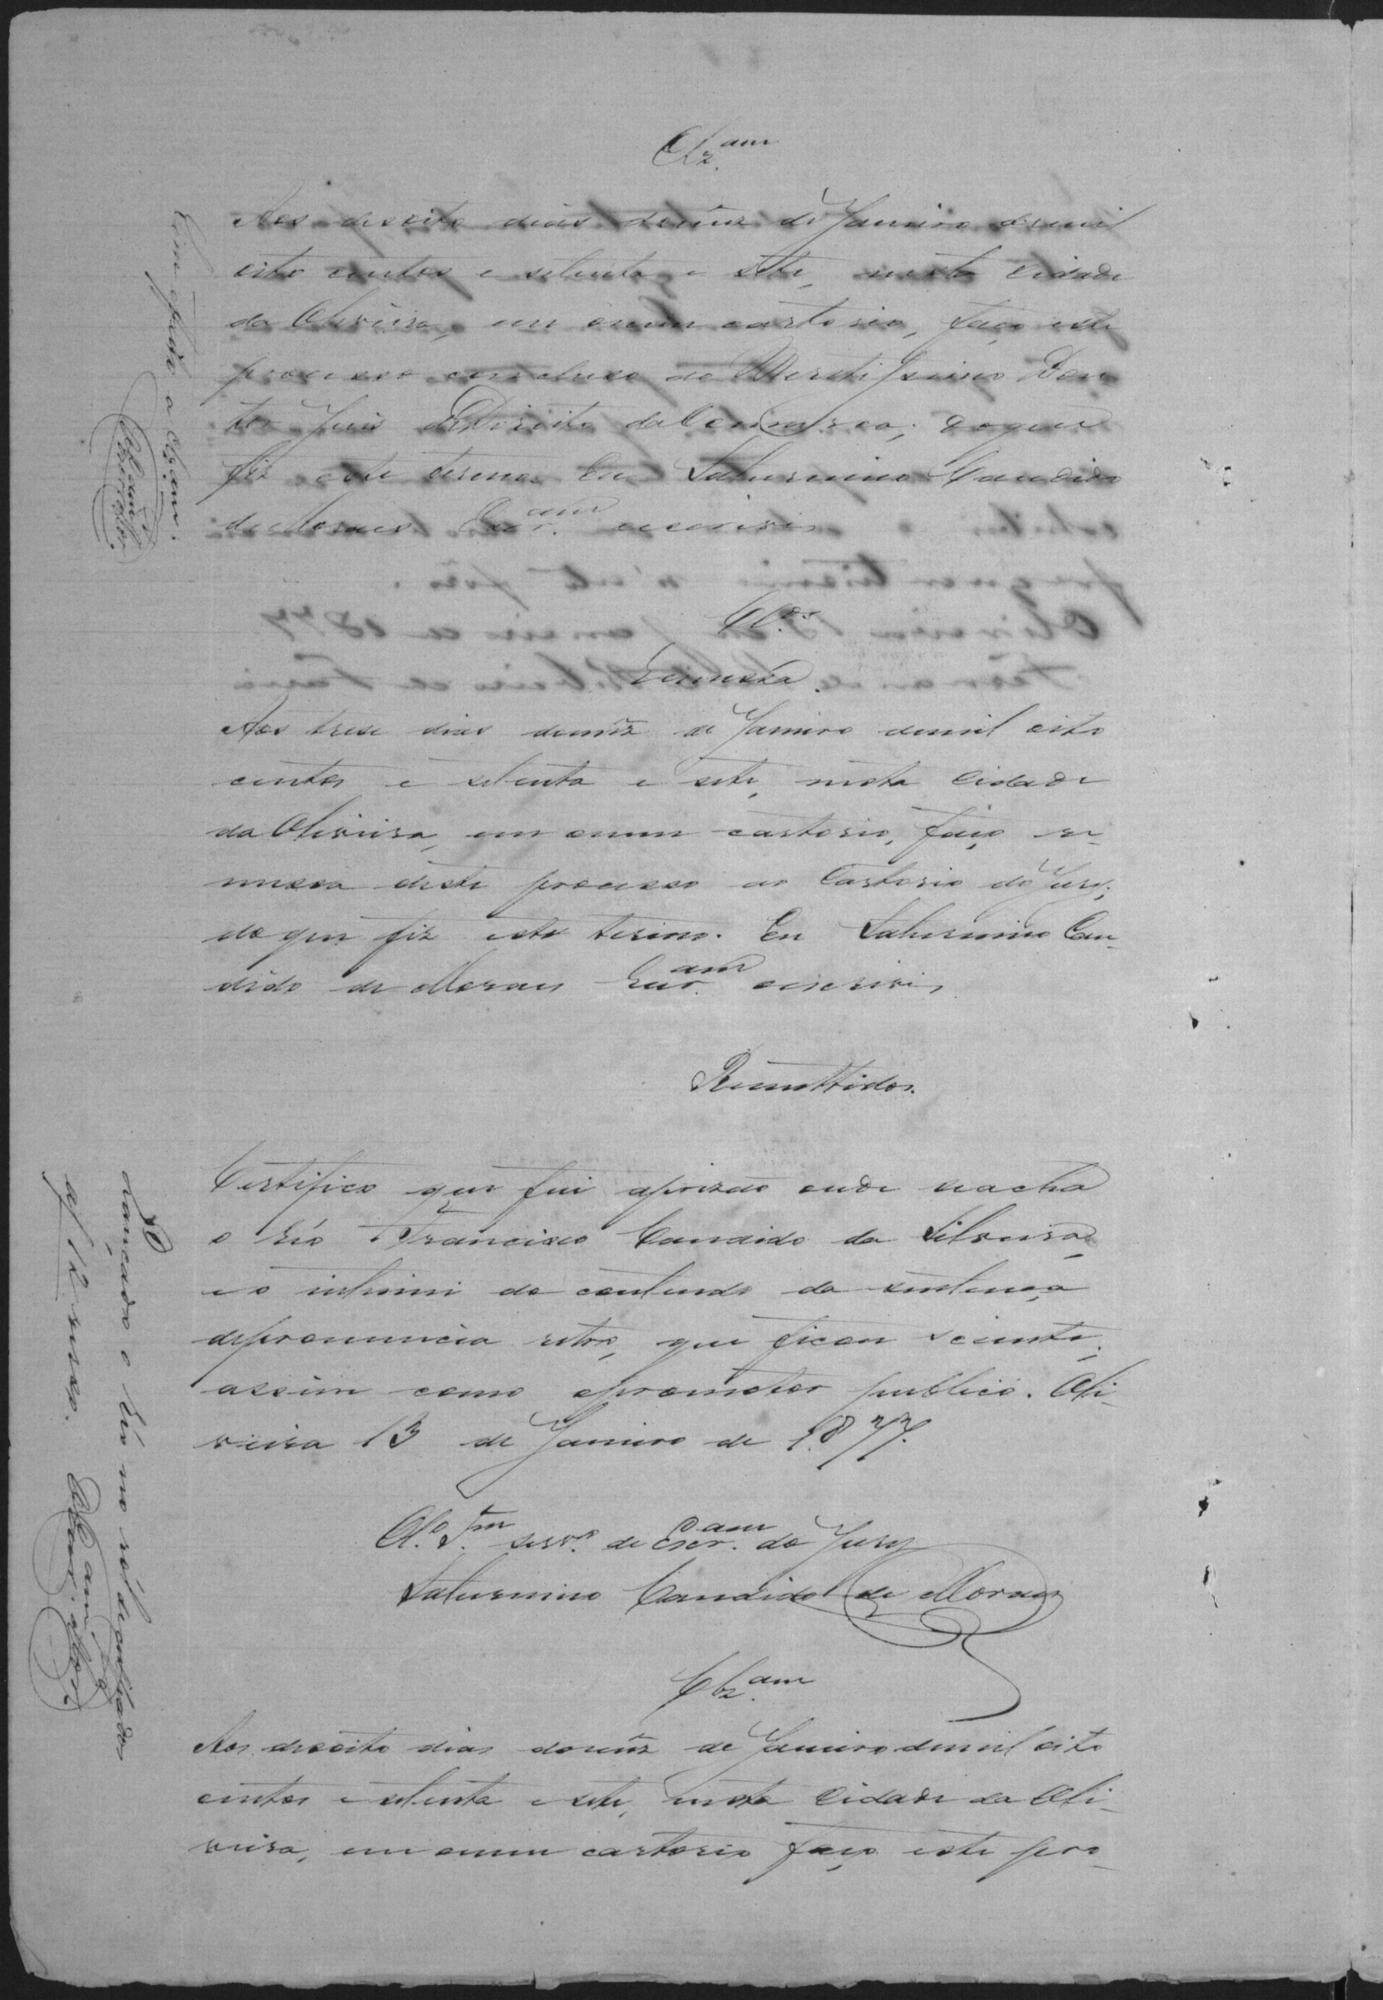 Clz.am
Aos desoito dias do mez de Janeiro de mil
oito centos e setenta e sete, nesta Cidade
da Oliveira, em o meu cartorio, faço este
processo concluso ao Merettissimo Dou
tor Juiz de Direito da Comarca; do que
fiz este termo. Eu Saturnino Candido
de Moraes Escr.am o escrivi
Cl.os
Remessa.
Aos trese dias do mez de Janeiro de mil oito
centos e setenta e sete, nesta Cidade
da Oliveira, em o meu cartorio, faço re-
messa deste processo ao Cartorio do Jury;
do que fiz este termo. Eu Saturnino Can-
dido de Moraes Escr.am o escrivi
Remettidos.
Certifico que fui a prizão onde se acha
o réo Francisco Candido da Silveira,
e o intimei do contendo da sentença
de pronuncia retro, que ficou sciente;
assim como o promotor publico. Oli-
veira 13 de Janeiro de 1877.
O 1.o Tm. serv.o de Escr.am do Jury
Saturnino Candido de Moraes
Clz.am
Aos desoito dias do mez de Janeiro de mil oito
centos e setenta e sete, nesta Cidade da Oli-
veira, em o meu cartorio faço este pro-
Lançado o réo no rol de culpados
af 12 verso.